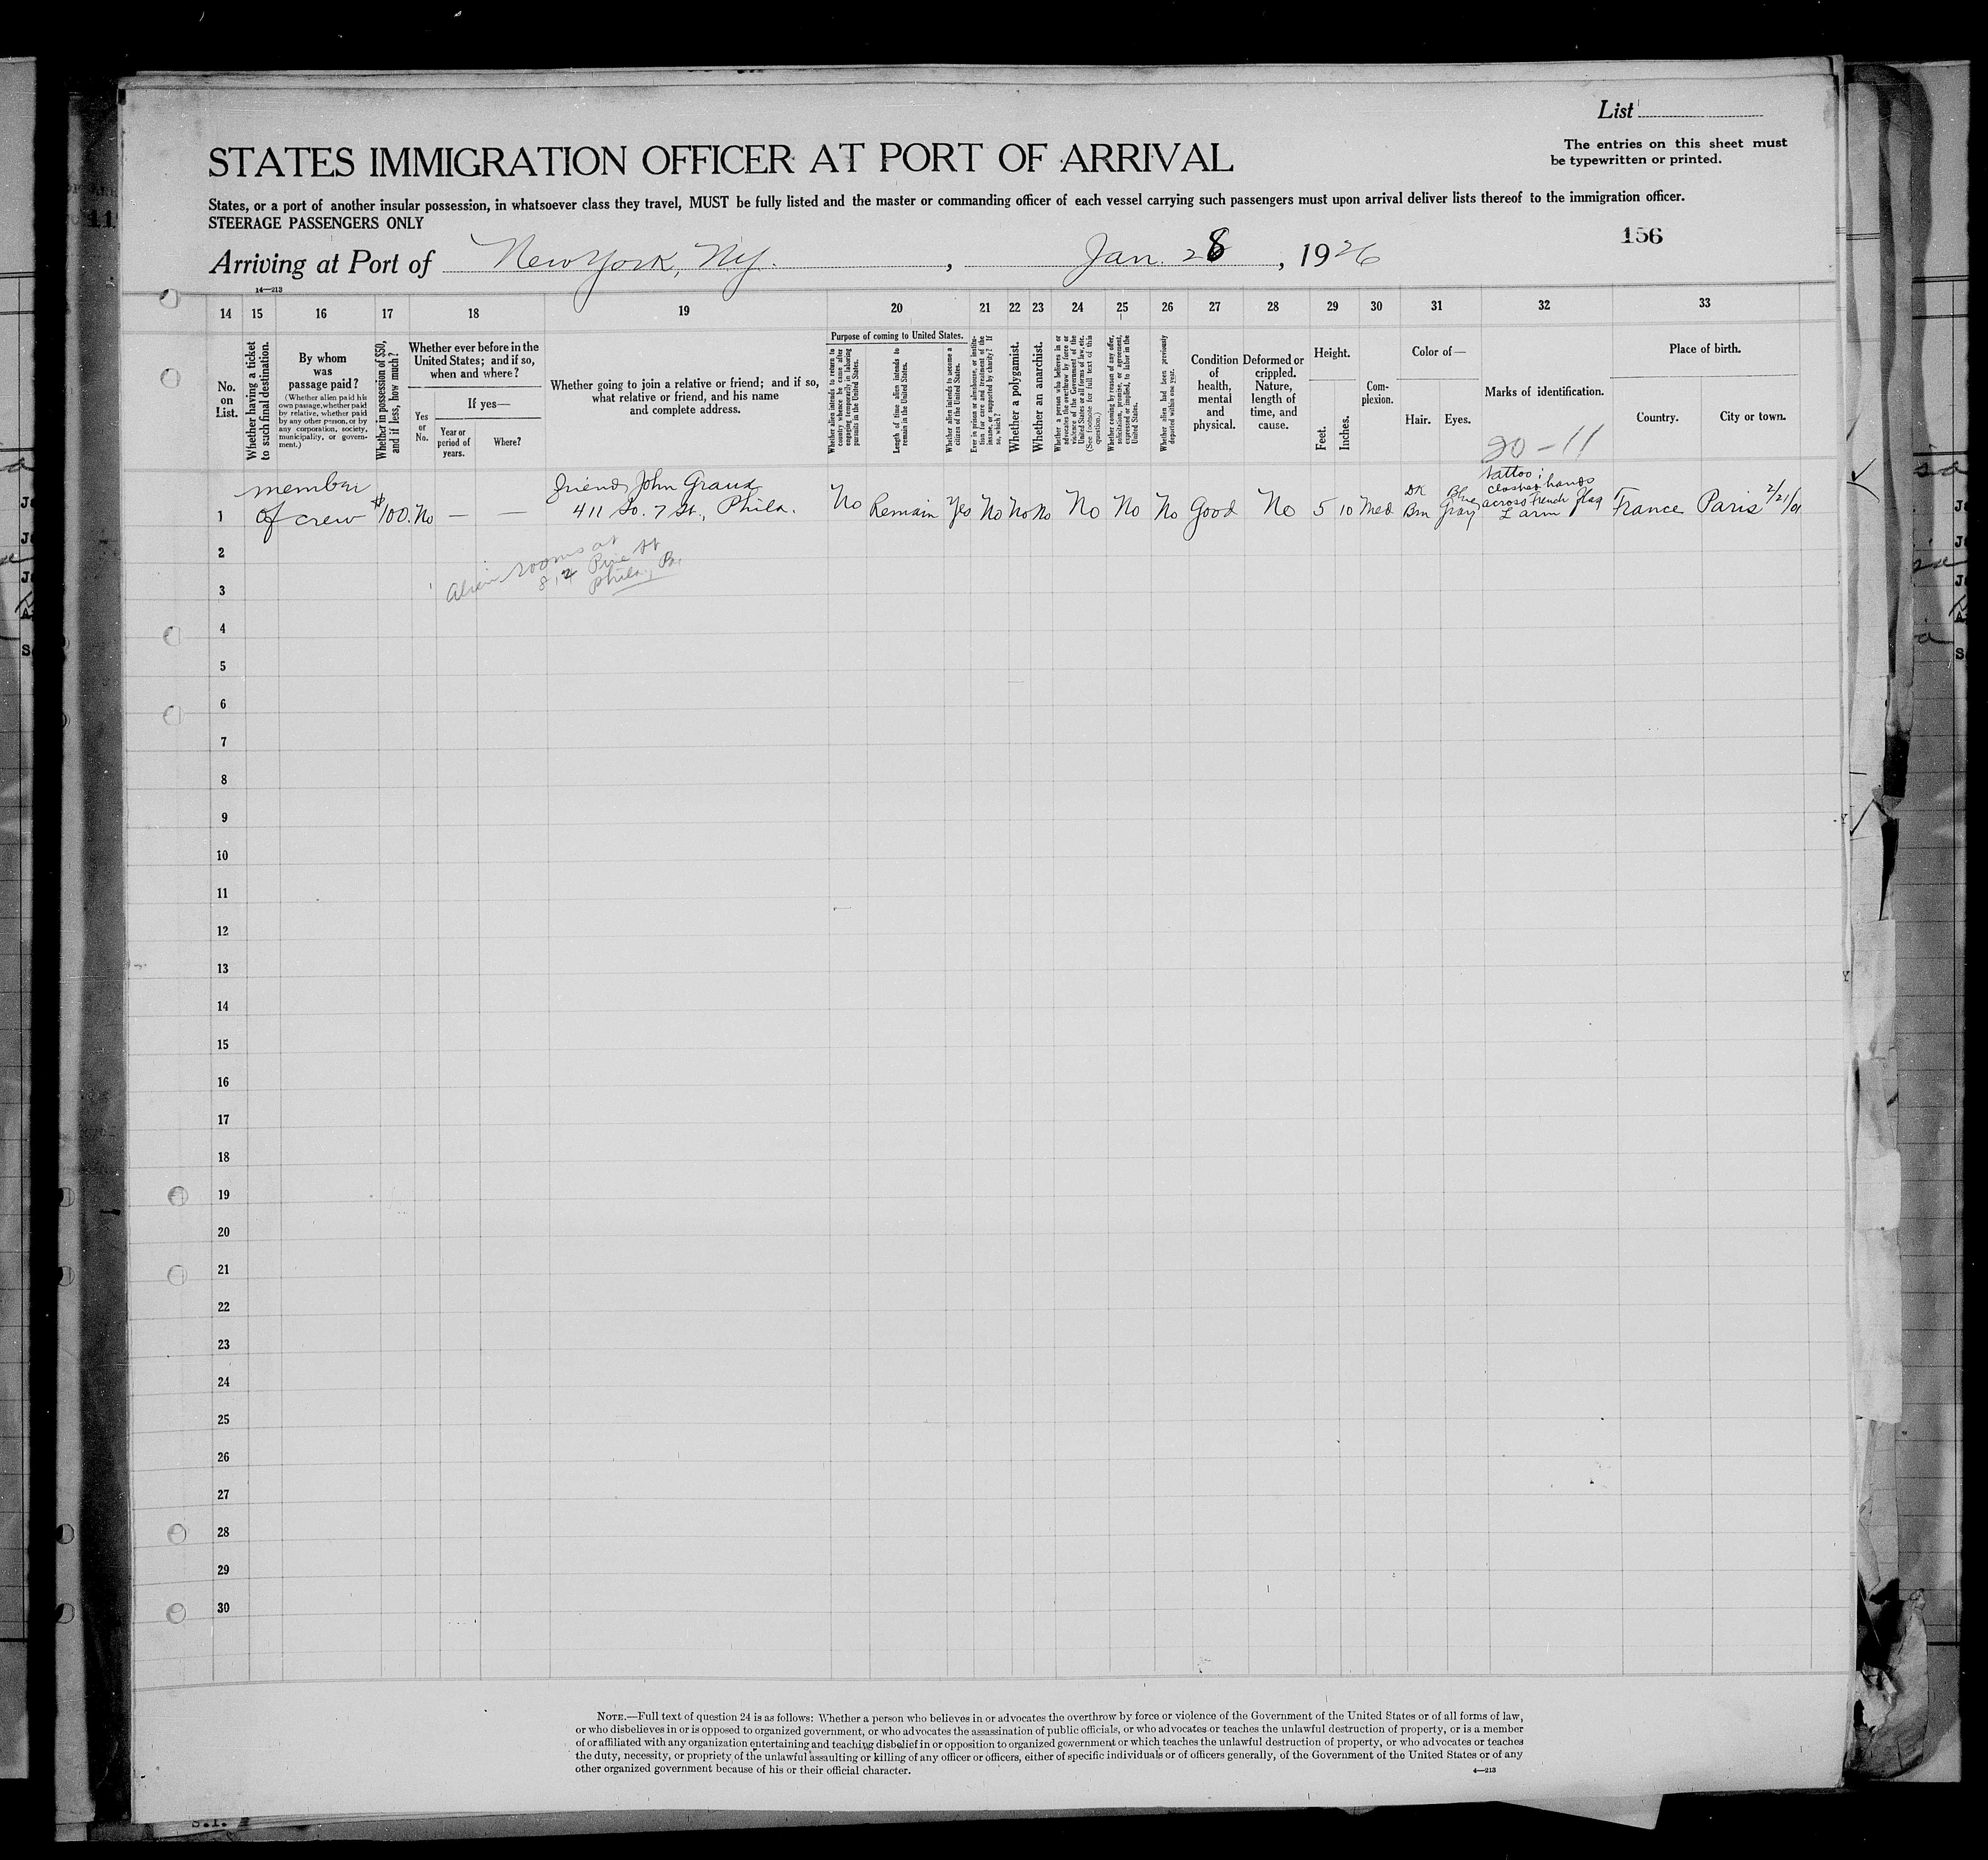 List
The entries on this sheet must
be typewritten or printed.
STATES IMMIGRATION OFFICER AT PORT OF ARRIVAL
States, or a port of another insular possession, in whatsoever class they travel, MUST be fully listed and the master or commanding officer of each vessel carrying such passengers must upon arrival deliver lists thereof to the immigration officer.
STEERAGE PASSENGERS ONLY
156
Arriving at Port of New York, Ny. , Jan. 28 , 1926
14—213
14 15 16 17 18 19 20 21 22 23 24 25 26 27 28 29 30 31 32 33
No. on List.
Whether having a ticket to such final destination.
By whom was passage paid?
(Whether alien paid his own passage, whether paid by relative, whether paid by any other person, or by any corporation, society, municipality, or government.)
Whether in possession of $50, and if less, how much?
Whether ever before in the United States; and if so, when and where?
Yes or No.
If yes—
Year or period of years.
Where?
Whether going to join a relative or friend; and if so, what relative or friend, and his name and complete address.
Purpose of coming to United States.
Whether alien intends to return to country whence he came after engaging temporarily in laboring pursuits in the United States.
Length of time alien intends to remain in the United States.
Whether alien intends to become a citizen of the United States.
Ever in prison or almshouse, or institution for care and treatment of the insane, or supported by charity? If so, which?
Whether a polygamist.
Whether an anarchist.
Whether a person who believes in or advocates the overthrow by force or violence of the Government of the United States or all forms of law, etc. (See footnote for full text of this question.)
Whether coming by reason of any offer, solicitation, promise, or agreement, expressed or implied, to labor in the United States.
Whether alien had been previously deported within one year.
Condition of health, mental and physical.
Deformed or crippled. Nature, length of time, and cause.
Height.
Feet.
Inches.
Complexion.
Color of—
Hair. Eyes.
Marks of identification.
20-11
Place of birth.
Country. City or town.
1 member of crew $100. No — — friend, John Graux 411 So. 7 St., Phila. No Remain Yes No No No No No No Good No 5 10 Med DK Brn Blue Gray tattoo; clasped hands across French flag L arm France Paris 2/21/01
2
Alien rooms at
812 Pine St
Phila, Pa.
3
4
5
6
7
8
9
10
11
12
13
14
15
16
17
18
19
20
21
22
23
24
25
26
27
28
29
30
NOTE.—Full text of question 24 is as follows: Whether a person who believes in or advocates the overthrow by force or violence of the Government of the United States or of all forms of law,
or who disbelieves in or is opposed to organized government, or who advocates the assassination of public officials, or who advocates or teaches the unlawful destruction of property, or is a member
of or affiliated with any organization entertaining and teaching disbelief in or opposition to organized government or which teaches the unlawful destruction of property, or who advocates or teaches
the duty, necessity, or propriety of the unlawful assaulting or killing of any officer or officers, either of specific individuals or of officers generally, of the Government of the United States or of any
other organized government because of his or their official character.
4—213